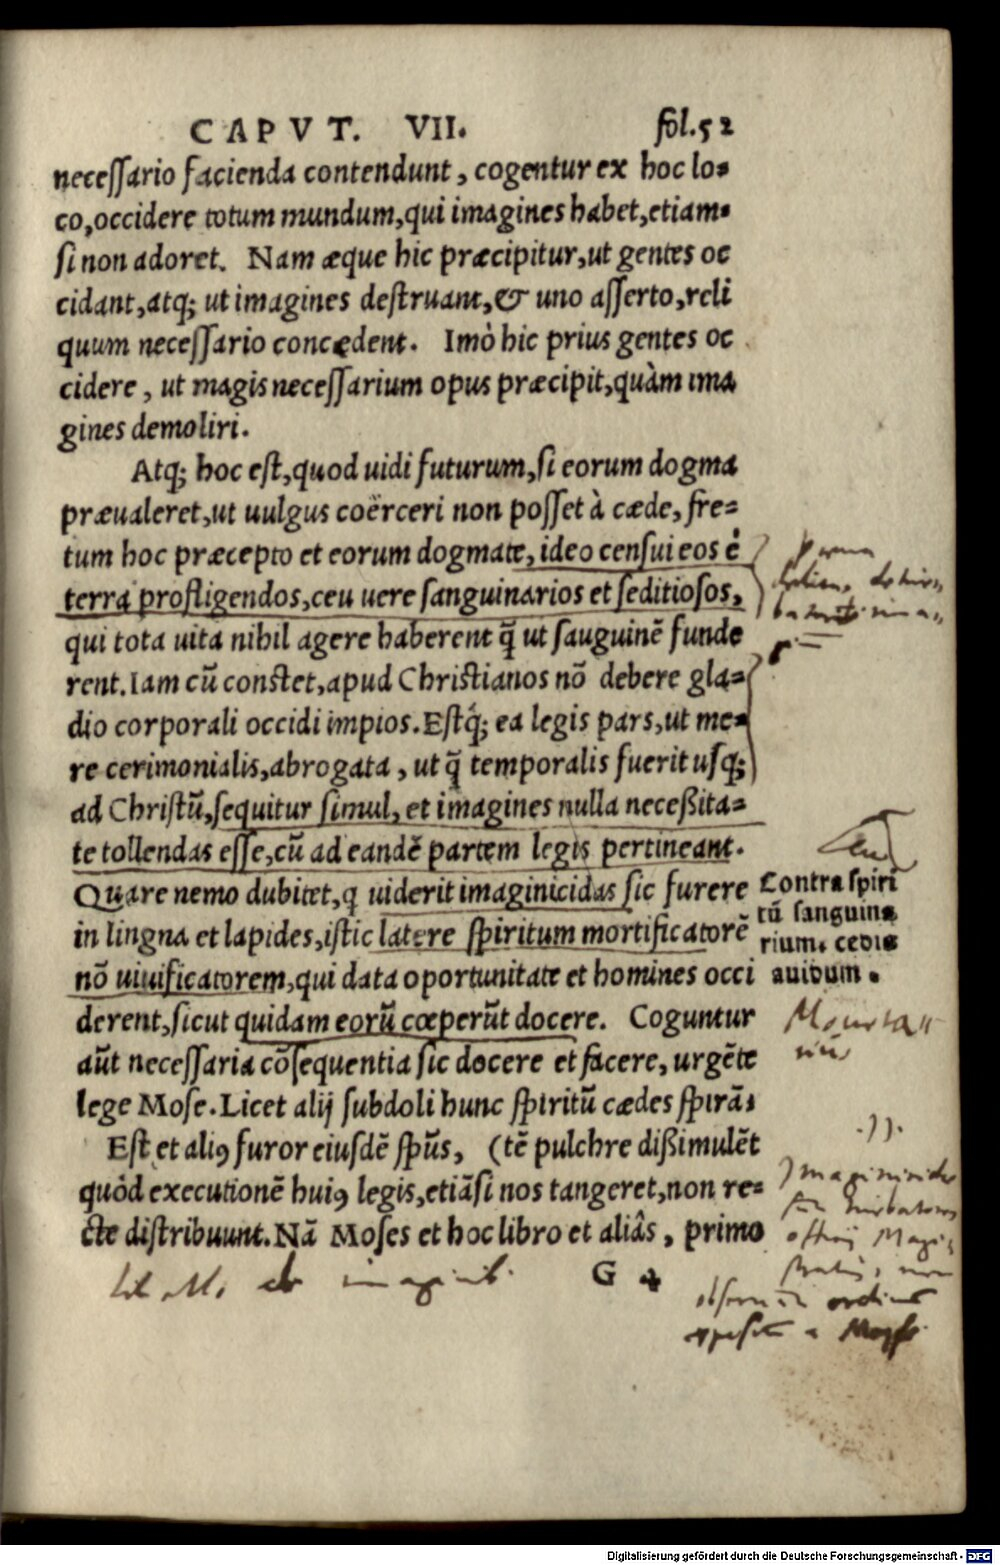 CAPVT. VII. fol.52
necessario facienda contendunt, cogentur ex hoc lo-
co, occidere totum mundum, qui imagines habet, etiam-
si non adoret. Nam æque hic præcipitur, ut gentes oc
cidant, atq; ut imagines destruant, & uno asserto, reli
quum necessario concędent. Imò hic prius gentes oc
cidere, ut magis necessarium opus præcipit, quàm ima
gines demoliri.
Atq; hoc est, quod uidi futurum, si eorum dogma
præualeret, ut uulgus coërceri non posset à cæde, fre-
tum hoc præcepto et eorum dogmate, ideo censui eos è
terra profligendos, ceu uere sanguinarios et seditiosos,
qui tota uita nihil agere haberent q̃ ut sauguinẽ funde
rent. Iam cũ constet, apud Christianos nõ debere gla-
dio corporali occidi impios. Estq́; ea legis pars, ut me-
re cerimonialis, abrogata, ut q̃ temporalis fuerit usq;
ad Christũ, sequitur simul, et imagines nulla neceßita-
te tollendas esse, cũ ad eandẽ partem legis pertineant.
Quare nemo dubitet, q uiderit imaginicidas sic furere
in lingna et lapides, istic latere spiritum mortificatorẽ
nõ uiuificatorem, qui data oportunitate et homines occi
derent, sicut quidam eorũ cœperũt docere. Coguntur
aũt necessaria cõsequentia sic docere et facere, urgẽte
lege Mose. Licet alij subdoli hunc spiritũ cædes spirã-
Est et aliꝰ furor eiusdẽ spũs, (tẽ pulchre dißimulẽt
quòd executionẽ huiꝰ legis, etiãsi nos tangeret, non re-
cte distribuunt. Nã Moses et hoc libro et aliâs, primo
G 4
Contra spiri
tũ sanguina
rium, cedis
auidum.
Digitalisierung gefördert durch die Deutsche Forschungsgemeinschaft - DFG